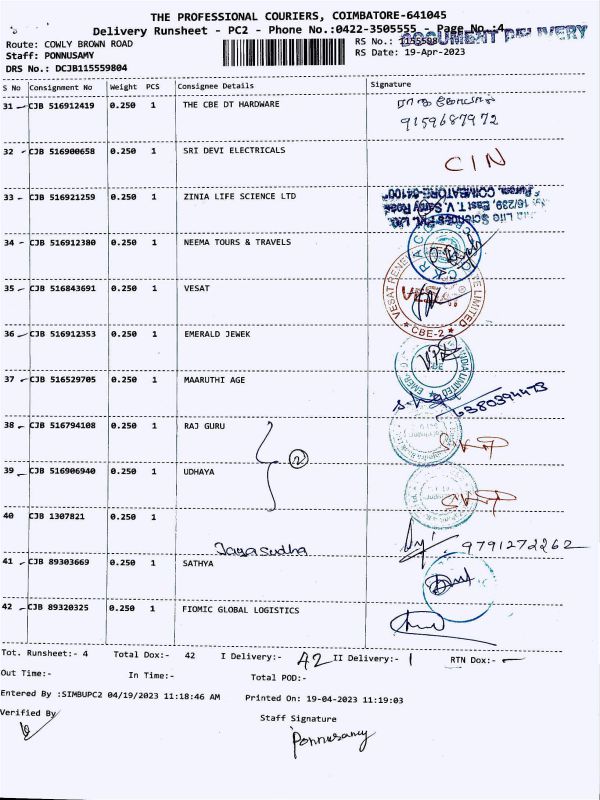 THE PROFESSIONAL COURIERS, COIMBATORE-641045
Delivery Runsheet - PC2 - Phone No.:0422-3505555 - Page No.:4
DOCUMENT DELIVERY
Route: COWLY BROWN ROAD
Staff: PONNUSAMY
DRS No.: DCJB115559804
RS No.:
RS Date: 19-Apr-2023
S No Consignment No Weight PCS Consignee Details Signature
31 CJB 516912419 0.250 1 THE CBE DT HARDWARE
9159687972
32 CJB 516900658 0.250 1 SRI DEVI ELECTRICALS CIN
33 CJB 516921259 0.250 1 ZINIA LIFE SCIENCE LTD
16/239, East T. V. Samy Road
Puram, COIMBATORE-64100
34 CJB 516912380 0.250 1 NEEMA TOURS & TRAVELS
35 CJB 516843691 0.250 1 VESAT
VESAT LIMITED
CBE-2
36 CJB 516912353 0.250 1 EMERALD JEWEK
37 CJB 516529705 0.250 1 MAARUTHI AGE
38 CJB 516794108 0.250 1 RAJ GURU
2
39 CJB 516906940 0.250 1 UDHAYA
40 CJB 1307821 0.250 1
9791272262
Jayasudha
41 CJB 89303669 0.250 1 SATHYA
42 CJB 89320325 0.250 1 FIOMIC GLOBAL LOGISTICS
Tot. Runsheet:- 4 Total Dox:- 42 I Delivery:- 42 II Delivery:- 1 RTN Dox:- -
Out Time:- In Time:- Total POD:-
Entered By :SIMBUPC2 04/19/2023 11:18:46 AM Printed On: 19-04-2023 11:19:03
Verified By
Staff Signature
Ponnusamy